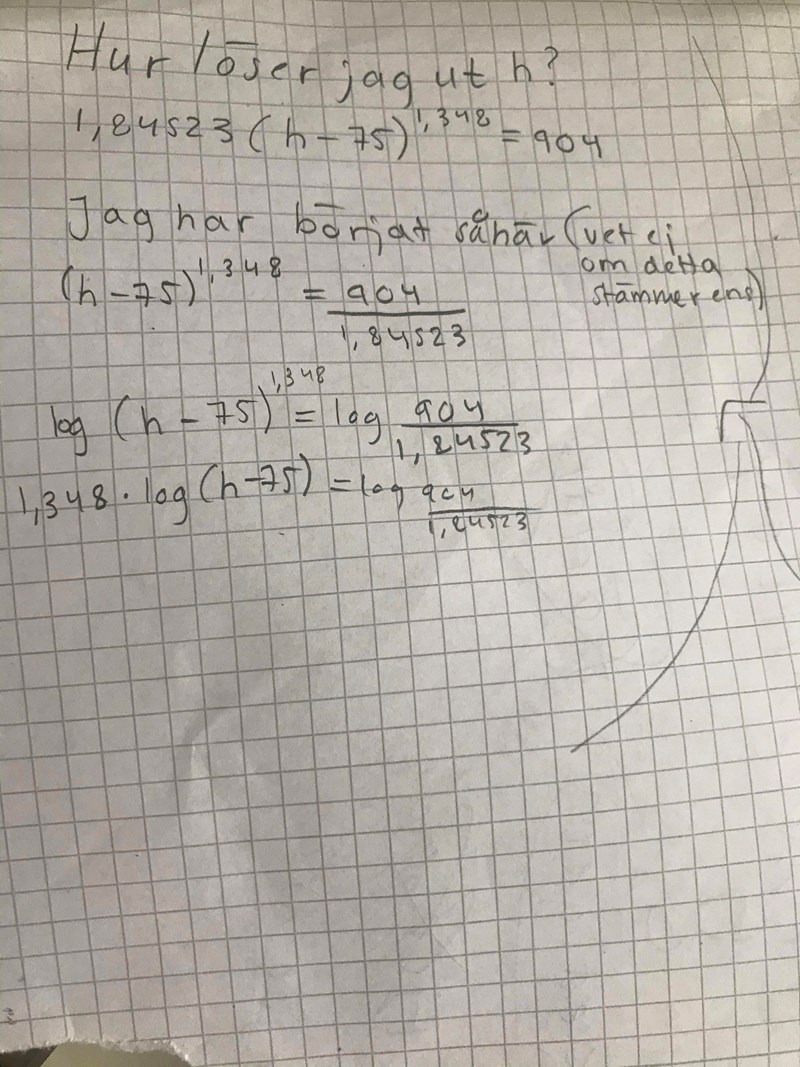 Hur löser jag ut h?
1,84523 (h-75)^1,348 = 904
Jag har börjat såhär (vet ej
om detta
stämmer ens)
(h-75)^1,348 = 904/1,84523
log (h-75)^1,348 = log 904/1,84523
1,348 · log (h-75) = log 904/1,84523